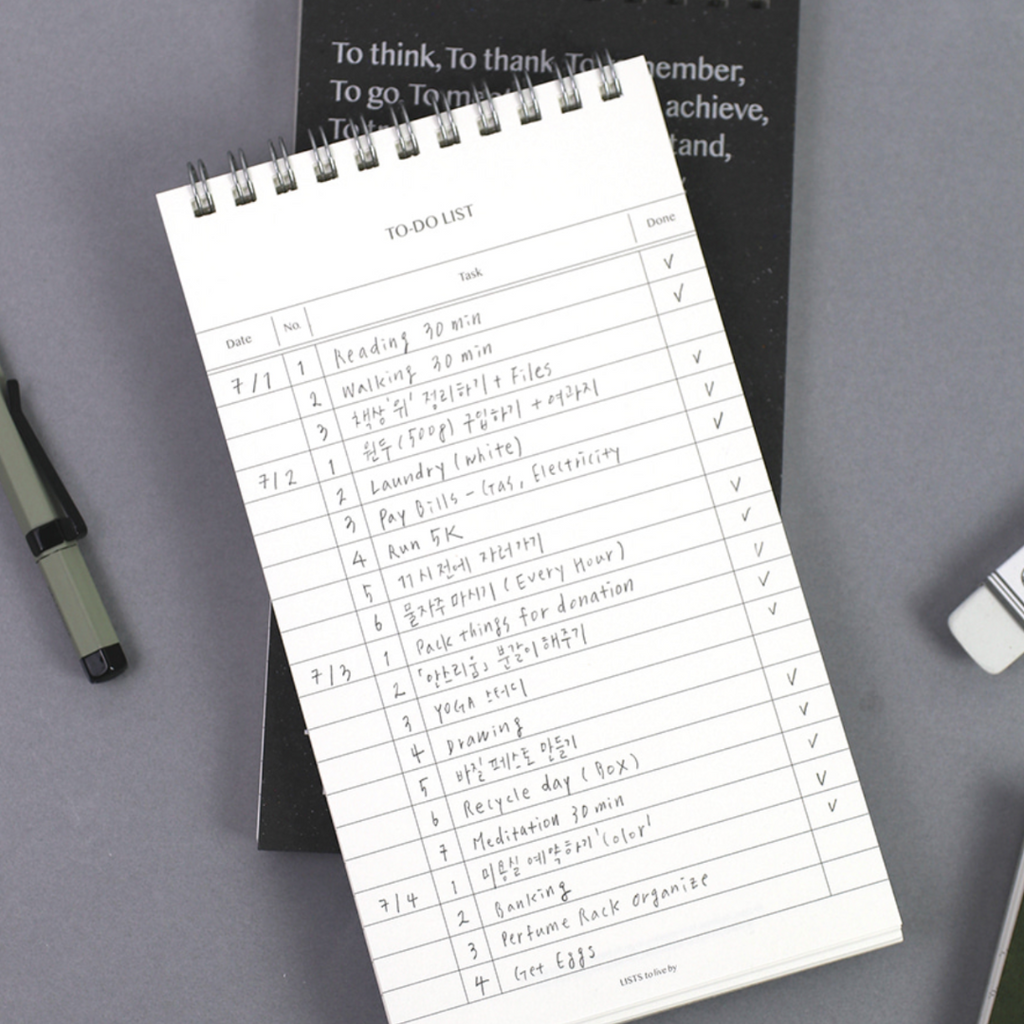 To think, To thank, To
To go, To achieve,
To
TO-DO LIST
Date No. Task Done
7/1 1 Reading 30 min ✓
2 Walking 30 min ✓
3 책상 '위' 정리하기 + Files
7/2 1 원두 (500g) 구입하기 + 여과지 ✓
2 Laundry (white) ✓
3 Pay Bills - Gas, Electricity ✓
4 Run 5K
5 11시 전에 자러가기 ✓
6 물 자주 마시기 (Every Hour) ✓
7/3 1 Pack things for donation ✓
2 「안스리움」 분갈이 해주기 ✓
3 YOGA 스터디 ✓
4 Drawing
5 바질 페스토 만들기 ✓
6 Recycle day (Box) ✓
7 Meditation 30 min ✓
7/4 1 미용실 예약하기 'Color' ✓
2 Banking ✓
3 Perfume Rack Organize
4 Get Eggs
LISTS to live by